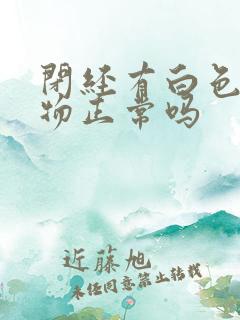 閉經有白色
物正常吗
近藤旭
未经同意禁止转载